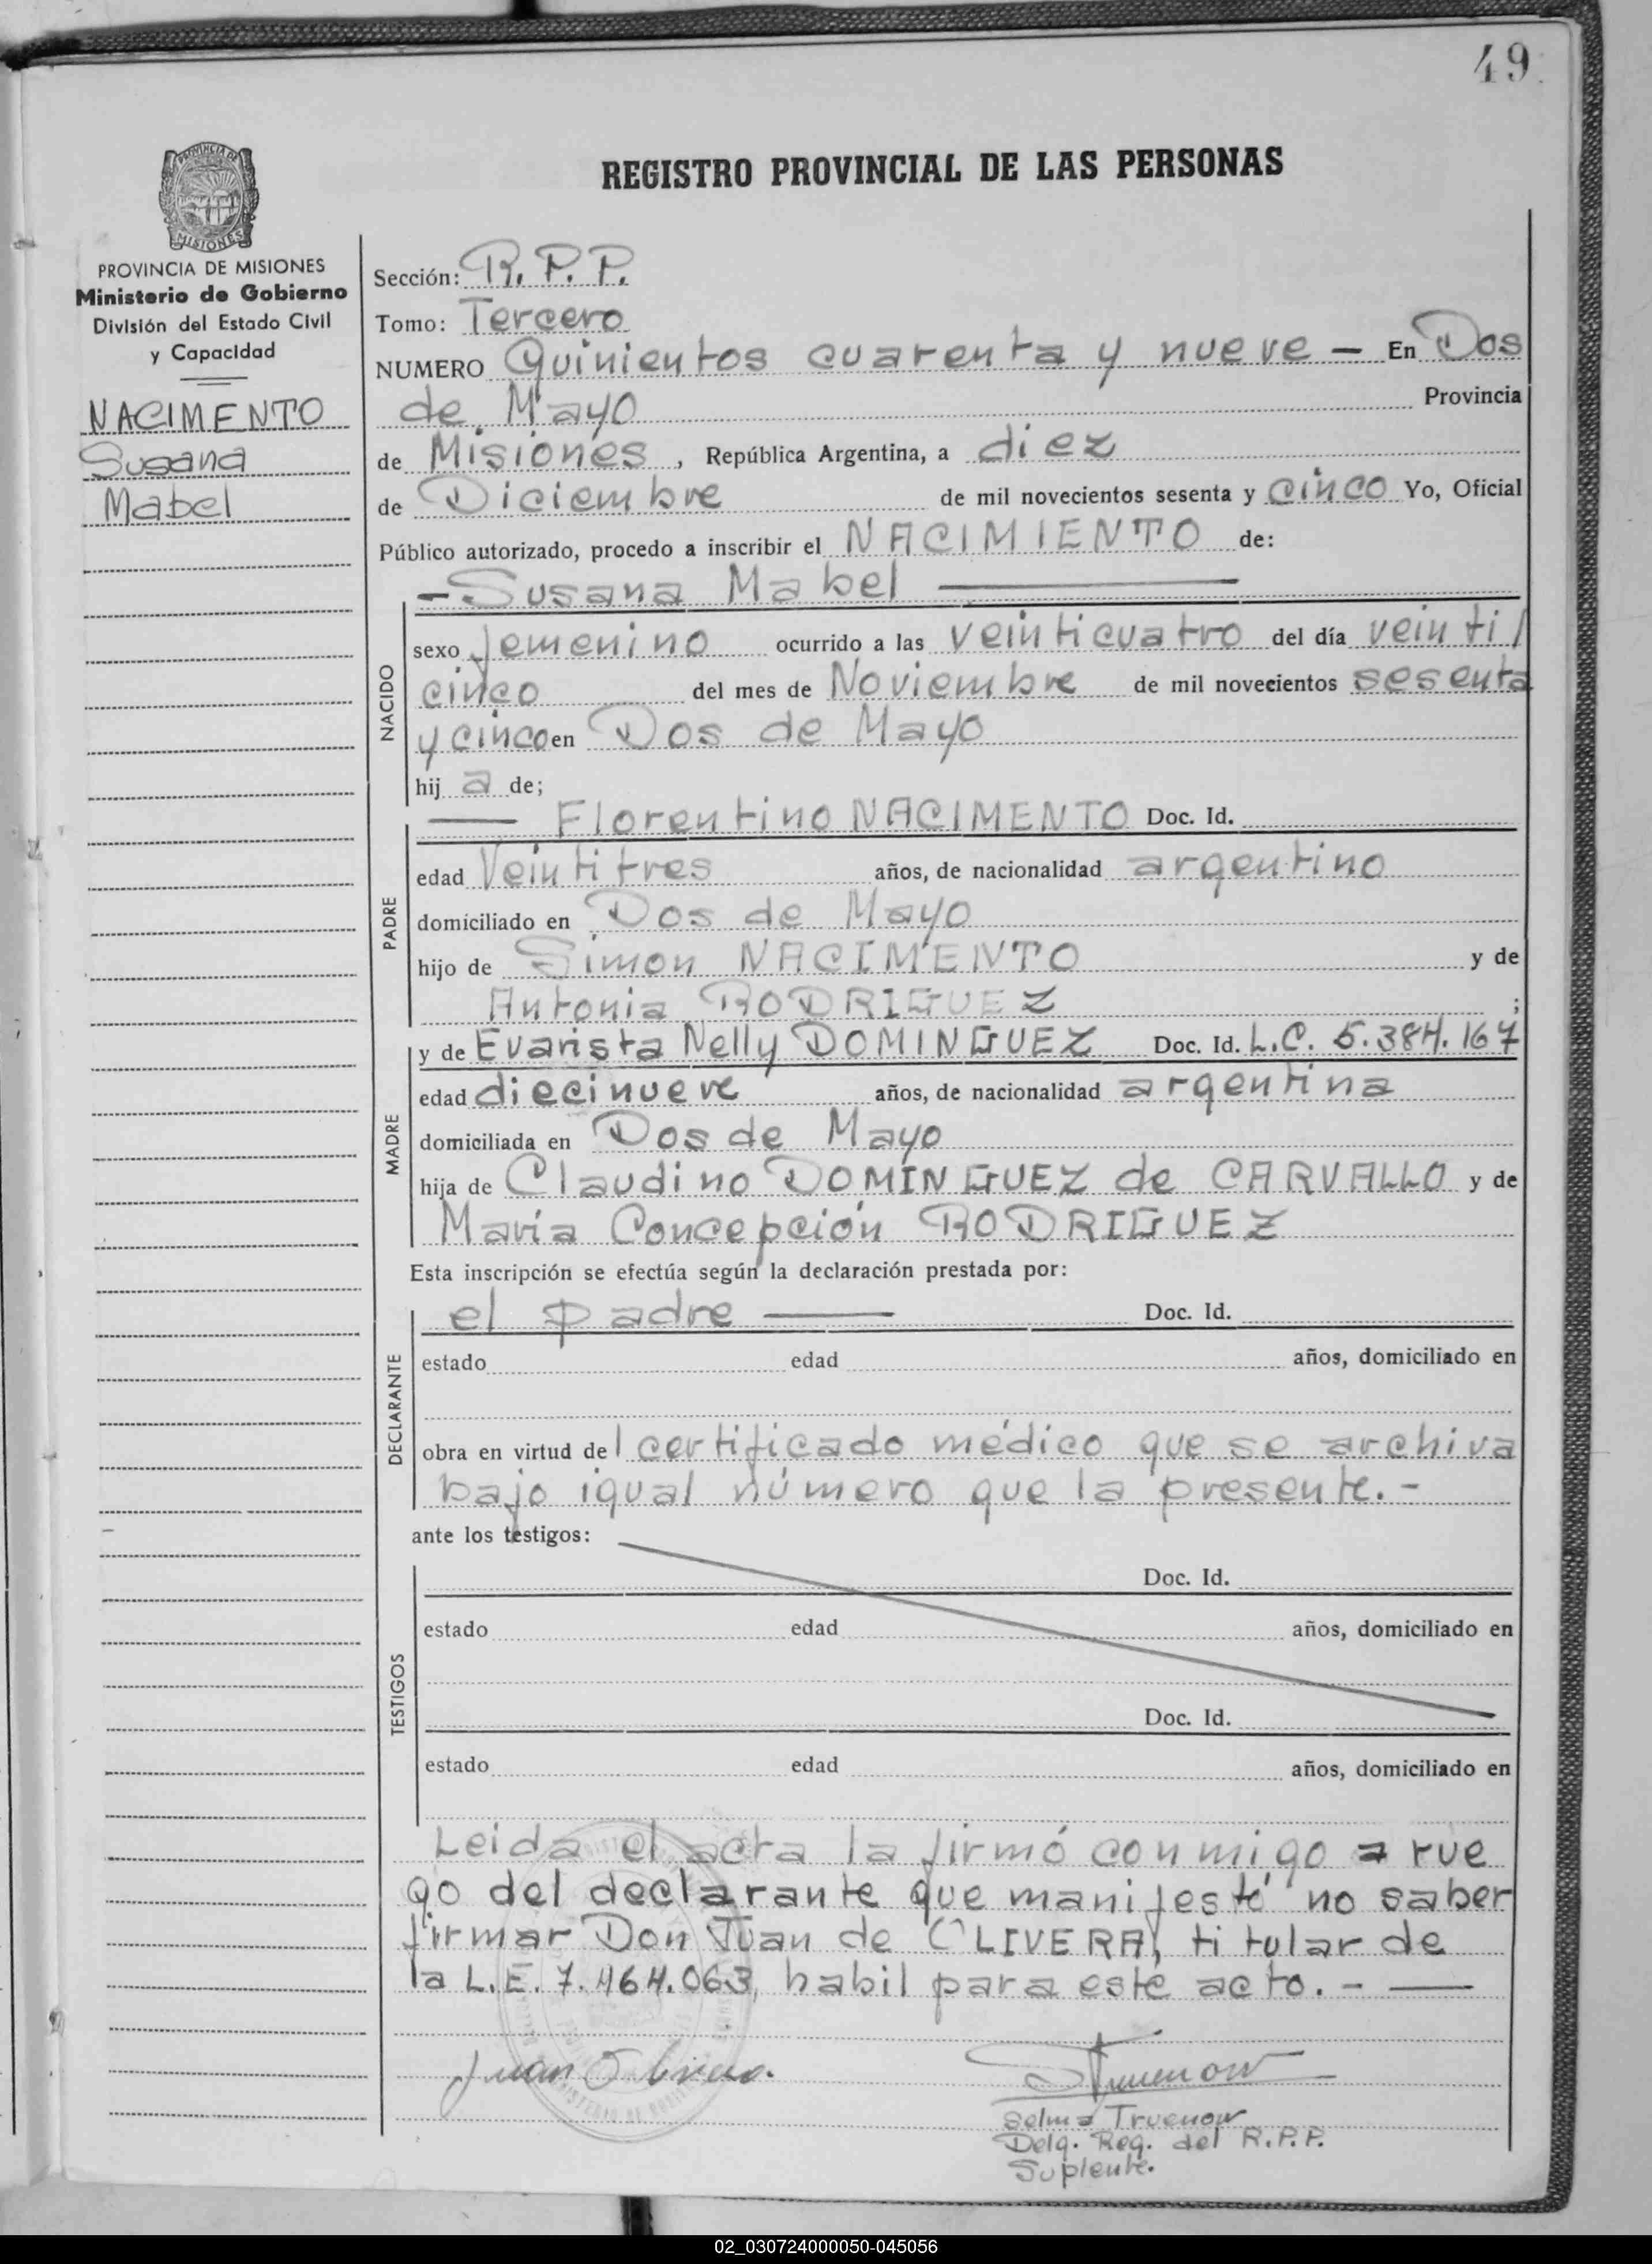 49.
REGISTRO PROVINCIAL DE LAS PERSONAS
PROVINCIA DE MISIONES
Ministerio de Gobierno
División del Estado Civil
y Capacidad
NACIMENTO
Susana
Mabel
Sección: R. P. P.
Tomo: Tercero
NUMERO Quinientos cuarenta y nueve — En Dos
de Mayo Provincia
de Misiones, República Argentina, a diez
de Diciembre de mil novecientos sesenta y cinco Yo, Oficial
Público autorizado, procedo a inscribir el NACIMIENTO de:
— Susana Mabel —
NACIDO
sexo femenino ocurrido a las veinticuatro del día veinti/
cinco del mes de Noviembre de mil novecientos sesenta
y cinco en Dos de Mayo
hij a de;
PADRE
— Florentino NACIMENTO Doc. Id.
edad Veintitres años, de nacionalidad argentino
domiciliado en Dos de Mayo
hijo de Simon NACIMENTO y de
Antonia RODRIGUEZ ;
MADRE
y de Evarista Nelly DOMINGUEZ Doc. Id. L.C. 5.384.167
edad diecinueve años, de nacionalidad argentina
domiciliada en Dos de Mayo
hija de Claudino DOMINGUEZ de CARVALLO y de
María Concepción RODRIGUEZ
Esta inscripción se efectúa según la declaración prestada por:
DECLARANTE
el padre — Doc. Id.
estado edad años, domiciliado en
obra en virtud del certificado médico que se archiva
bajo igual número que la presente. -
ante los testigos:
TESTIGOS
Doc. Id.
estado edad años, domiciliado en
Doc. Id.
estado edad años, domiciliado en
Leida el acta la firmó conmigo a rue
go del declarante que manifestó no saber
firmar Don Juan de OLIVERA, titular de
la L.E. 7.464.063, habil para este acto. - —
Juan Olivera.
Truenow
Selma Truenow
Delg. Reg. del R.P.P.
Suplente.
02_030724000050-045056